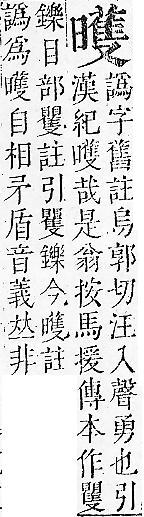 譌字舊註烏郭切汪入聲勇也引
漢紀哉是翁按馬援傳本作矍
鑠目部矍註引矍鑠今註
譌為自相矛盾音義𠀤非